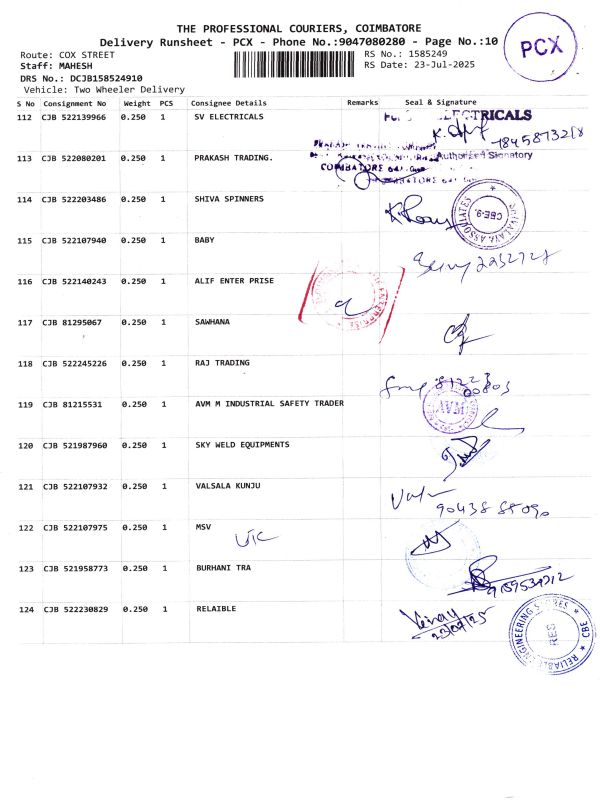 THE PROFESSIONAL COURIERS, COIMBATORE
Delivery Runsheet - PCX - Phone No.:9047080280 - Page No.:10
PCX
Route: COX STREET
RS No.: 1585249
Staff: MAHESH
RS Date: 23-Jul-2025
DRS No.: DCJB158524910
Vehicle: Two Wheeler Delivery
S No Consignment No Weight PCS Consignee Details Remarks Seal & Signature
112 CJB 522139966 0.250 1 SV ELECTRICALS
Authorised Signatory
113 CJB 522080201 0.250 1 PRAKASH TRADING.
COIMBATORE
114 CJB 522203486 0.250 1 SHIVA SPINNERS
SHIVALAYA ASSOCIATES CBE-9
115 CJB 522107940 0.250 1 BABY
116 CJB 522140243 0.250 1 ALIF ENTER PRISE
117 CJB 81295067 0.250 1 SAWHANA
118 CJB 522245226 0.250 1 RAJ TRADING
119 CJB 81215531 0.250 1 AVM M INDUSTRIAL SAFETY TRADER
AVM
120 CJB 521987960 0.250 1 SKY WELD EQUIPMENTS
121 CJB 522107932 0.250 1 VALSALA KUNJU
122 CJB 522107975 0.250 1 MSV
123 CJB 521958773 0.250 1 BURHANI TRA
124 CJB 522230829 0.250 1 RELAIBLE
23/07/25
RELIABLE ENGINEERING STORES CBE RES